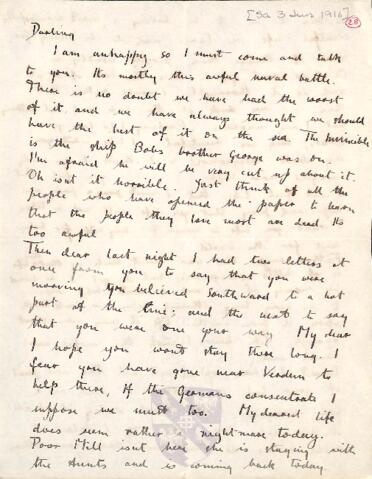 [Sa 3 June 1916]
28
Darling
I am unhappy so I must come and talk
to you. Its mostly this awful naval battle.
There is no doubt we have had the worst
of it and we have always thought we should
have the best of it on the sea. The Invincible
is the ship Bobs brother George was on.
I'm afraid he will be very cut up about it.
Oh isn't it horrible. Just think of all the
people who have opened the paper to learn
that the people they love most are dead. Its
too awful
Then dear last night I had two letters at
once from you to say that you were
mooving you believed Southward to a hot
part of the line; and the next to say
that you were one your way My dear
I hope you wont stay there long. I
fear you have gone near Verdun to
help there, If the Germans consentrate I
suppose we must too. My dearest life
does seem rather nightmare today.
Poor Mill isnt here she is staying with
the Aunts and is coming back today